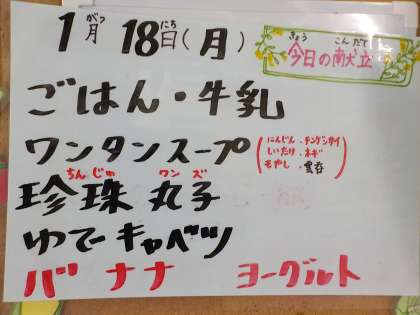 1月 18日(月)
がつ にち
きょう こんだて
今日の献立
ごはん・牛乳
ワンタンスープ
(にんじん・チンゲンサイ
しいたけ・ネギ
もやし・雲呑)
ちんじゅ ワンズ
珍珠 丸子
ゆでキャベツ
バナナ ヨーグルト